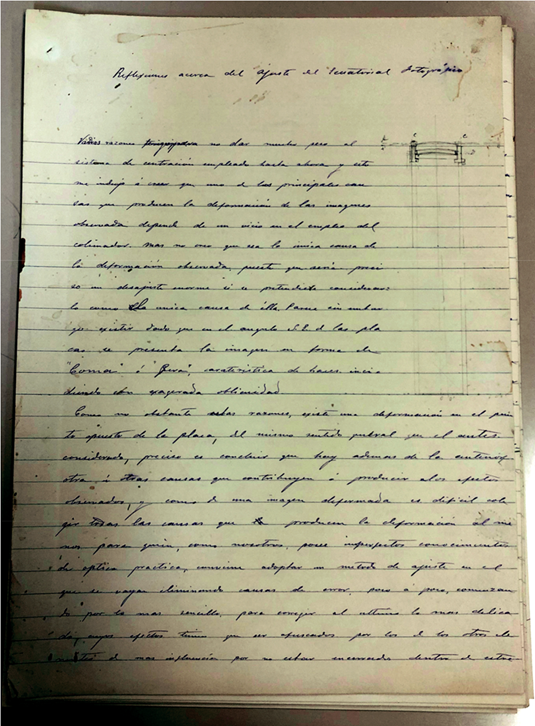 Reflexiones acerca del ajuste del Ecuatorial Fotográfico
Varias razones no dar mucho peso al
sistema de centración empleado hasta ahora y esto
me indujo á creer que una de las principales cau
sas que producen la deformación de las imagenes
observada depende de un vicio en el empleo del
colimador. mas no creo que sea la única causa de
la deformación observada, puest que seria preci
so un desajuste enorme si se pretendiese considerar
lo como la unica causa de ella. Parece sin embar
go existir dado que en el angulo S.E. de las pla
cas, se presenta la imagen en forma de
"Coma" ó "Pera", caraterística de haces inci
diendo con exagerada oblicuidad.
Como no obstante estas razones, existe una deformación en el pun
to opuesto de la placa, del mismo sentido que el antes
considerado, preciso es concluir que hay ademas de la anterior
otra ú otras causas que contribuyen á producir los efectos
observados, y como de una imagen deformada es dificil cole
gir todas las causas que producen la deformación al me
nos para quien, como nosotros, posee imperfectos conocimientos
de optica practica, conviene adoptar un metodo de ajuste en el
que se vayan eliminando causas de error, poco a poco, comenzan
do por la mas sencilla, para corregir al ultimo la mas delica
da, cuyos efectos tienen que ser ofuscados por los de los otros ele
mentos de mas influencia por no estar encerrada dentro de estre